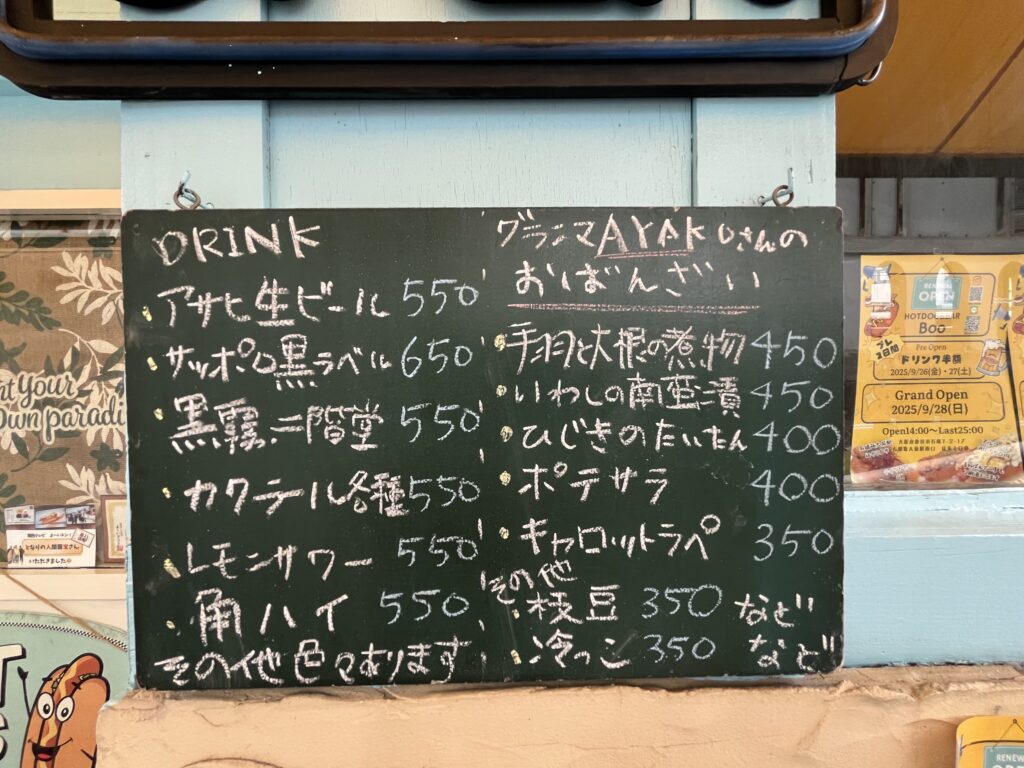 DRINK
・アサヒ生ビール 550
・サッポロ黒ラベル 650
・黒霧.二階堂 550
・カクテール各種 550
・レモンサワー 550
・角ハイ 550
その他色々あります
グランマAYAKOさんの
おばんざい
・手羽と大根の煮物 450
・いわしの南蛮漬 450
・ひじきのたいたん 400
・ポテサラ 400
・キャロットラペ 350
その他
・枝豆 350 など
・冷っこ 350 など
RENEWAL
OPEN
HOTDOG BAR
Boo
プレ2日間
Pre Open
ドリンク半額
2025/9/26(金)・27(土)
Grand Open
2025/9/28(日)
Open14:00～Last25:00
own paradi
となりの人間国宝さん
いただきました
RENEWAL